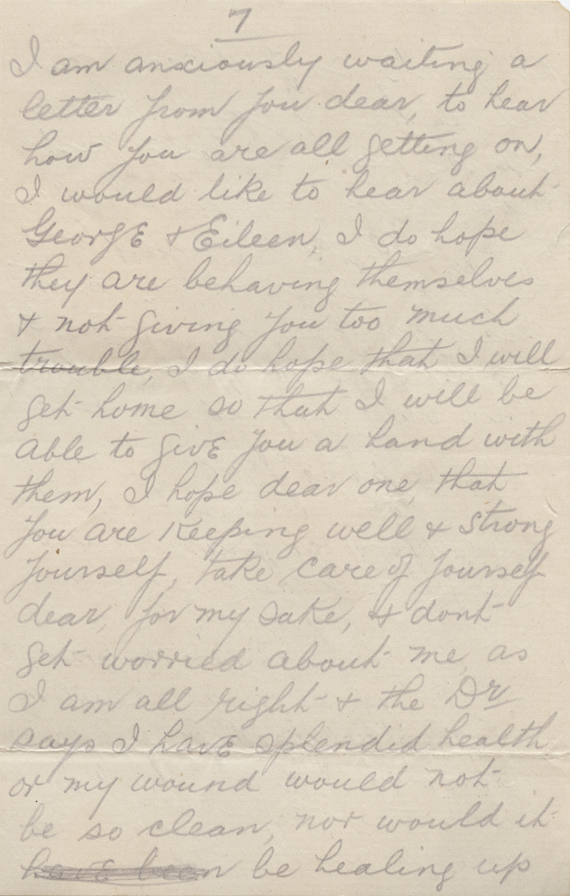 7
I am anxiously waiting a
letter from you dear, to hear
how you are all getting on,
I would like to hear about
George & Eileen, I do hope
they are behaving themselves
& not giving you too much
trouble, I do hope that I will
get home so that I will be
able to give you a hand with
them, I hope dear one that
you are keeping well & strong
yourself, take care of yourself
dear, for my sake, & dont
get worried about me as
I am all right & the Dr
says I have splendid health
or my wound would not
be so clean, nor would it
have been be healing up